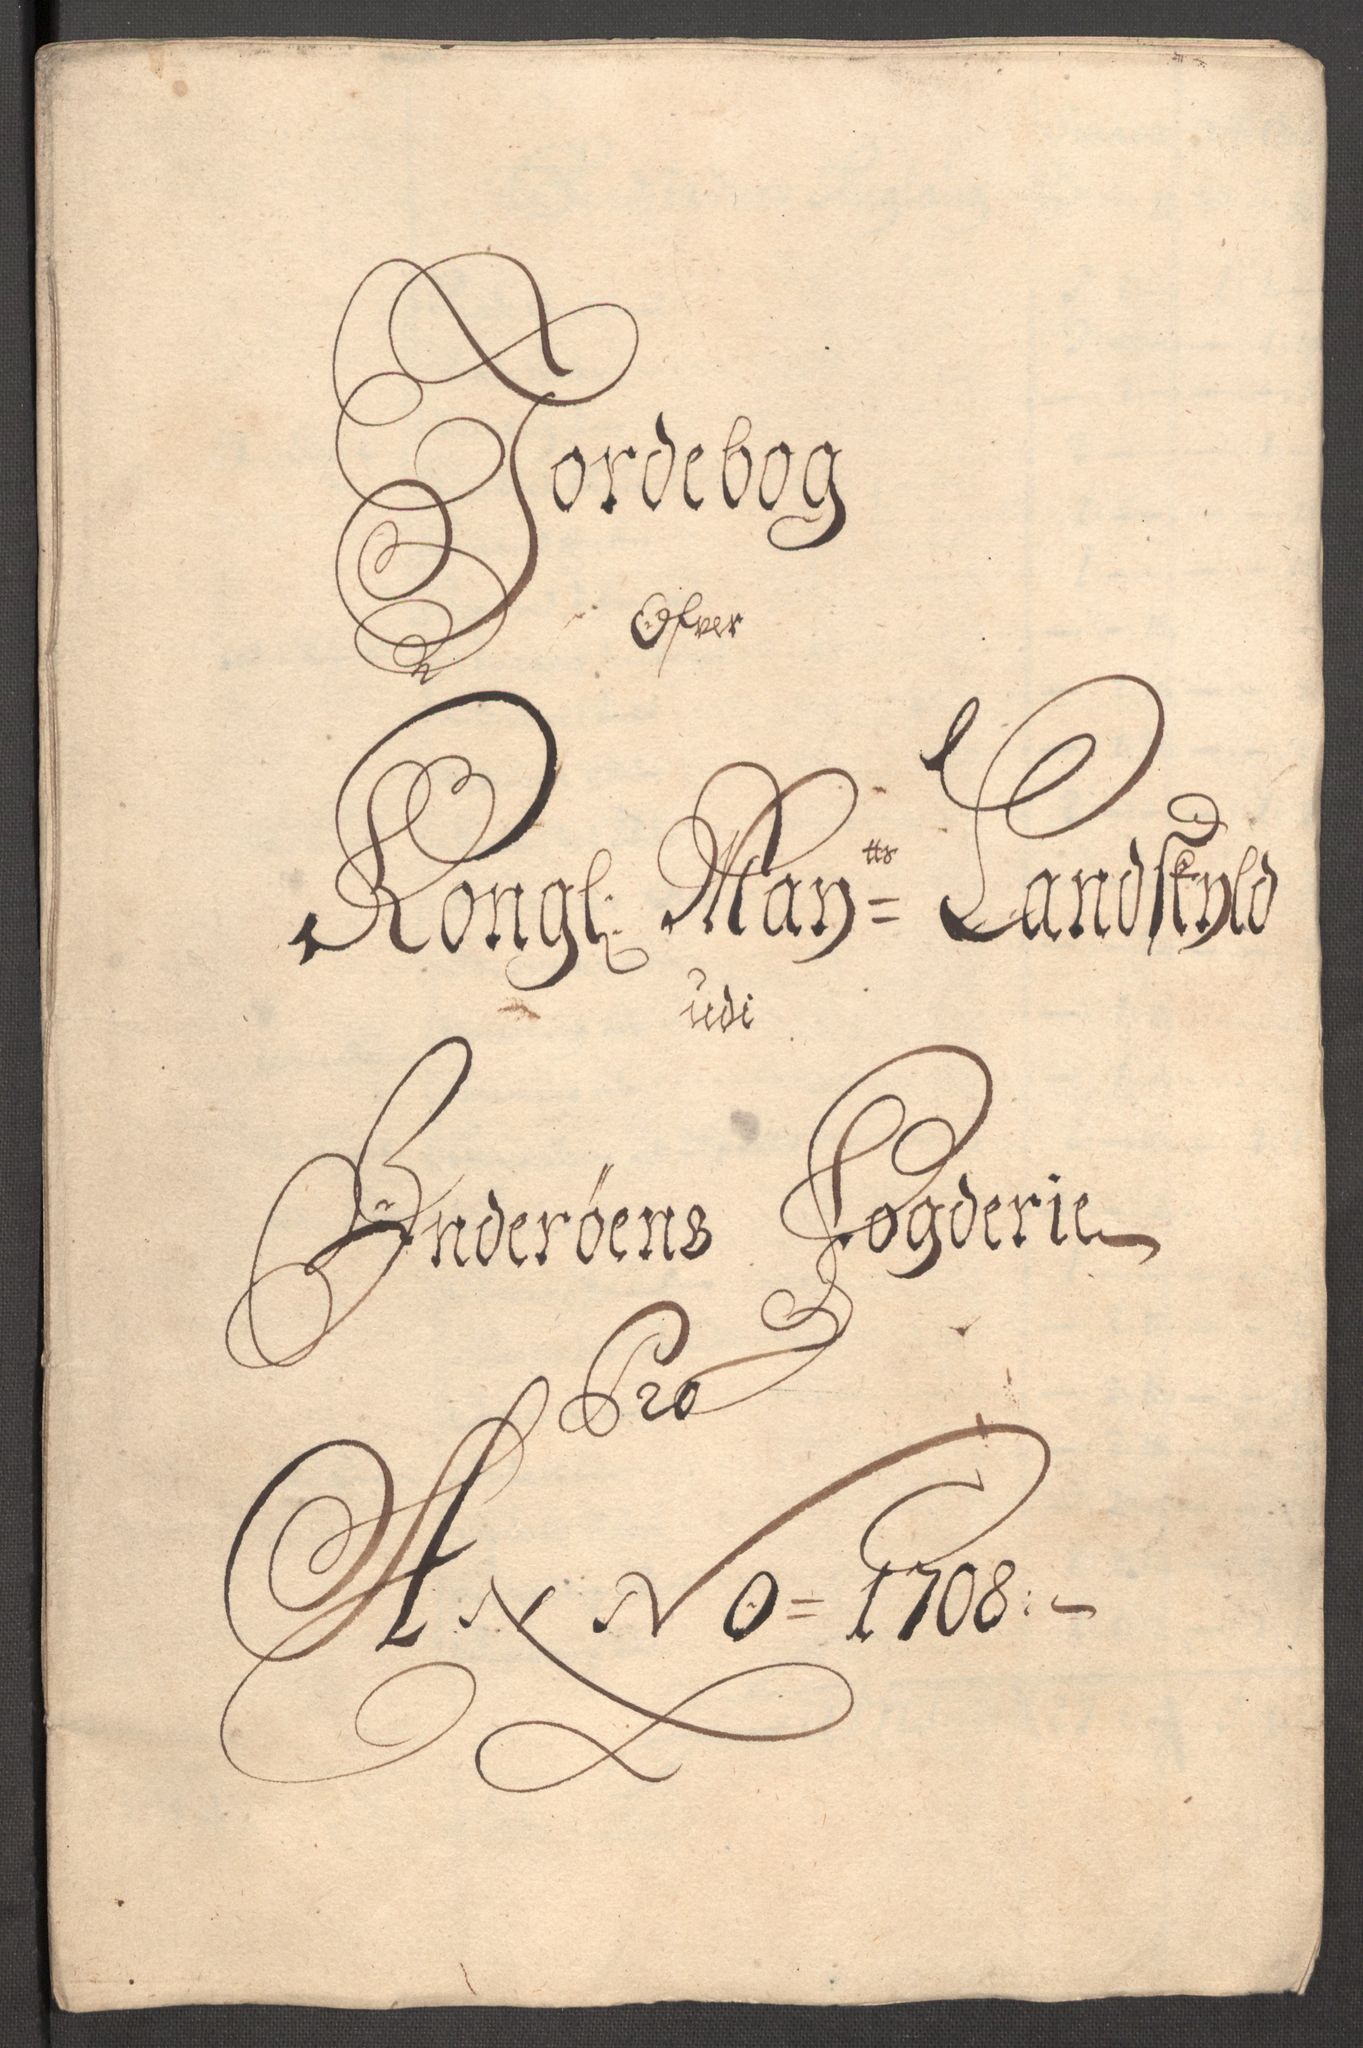 Jordebog
Ofver
Kongl: May<sup>tts</sup>= Landskyld
udi
Inderöens Fogderie
Pro
ANNO = 1708:-